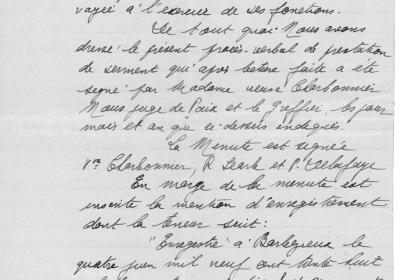 à l'exercice de ses fonctions.
De tout quoi Nous avons
dressé le présent procès-verbal de prestation
de serment qui après lecture faite a été
signé par Madame veuve Charbonnier
Nous juge de Paix et le Greffier, les jour
mois et an que ci-dessus indiqués.
La Minute est signée
Vve Charbonnier, R et P. Delafaye
En marge de la minute est
inscrite la mention d'enregistrement
dont la teneur suit:
"Enregistré à Barbezieux le
quatre juin mil neuf cent trente huit